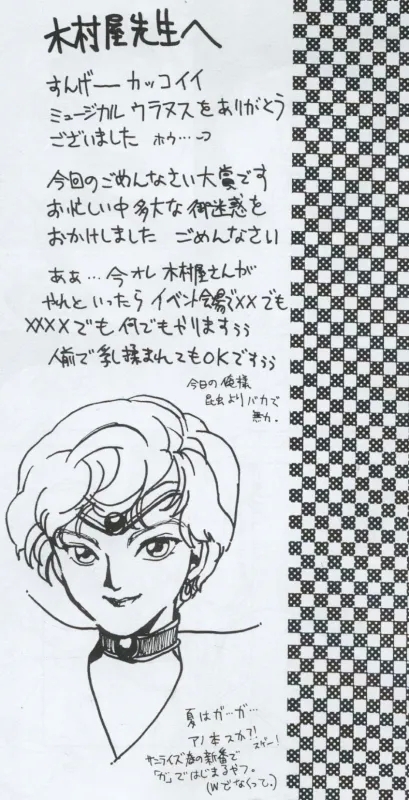 木村屋先生へ
すんげー カッコイイ
ミュージカル ウラヌスをありがとう
ございました ホゥ…っ
今回のごめんなさい大賞です
お忙しい中 多大な御迷惑を
おかけしました ごめんなさい
あぁ… 今オレ 木村屋さんが
やれと いったら イベント会場で××でも
××××でも 何でもやりますぅぅ
人前で乳揉まれてもOKですぅぅ
今日の俺様
昆虫よりバカで
無力。
夏はガ…ガ…
アノ本スカ?!
スゲー!
サンライズ 春の新番で
「ガ」ではじまるやつ。
(Wでなくって。)